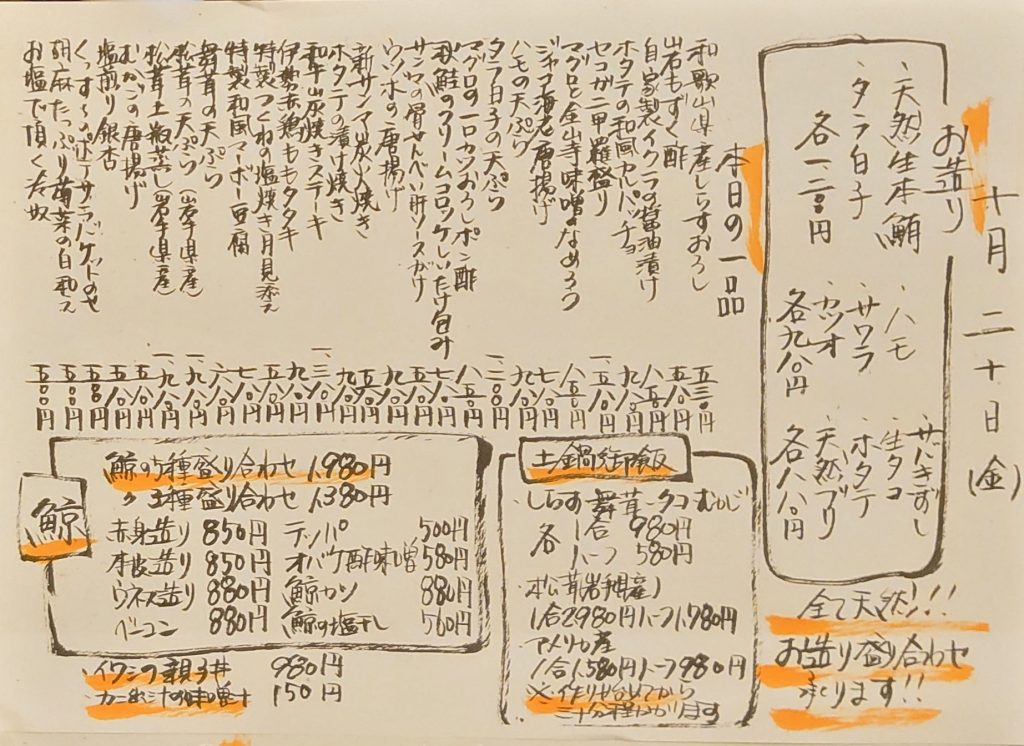 十月二十日(金)
お造り
・天然生本鮪
・タラ白子
各一、二〇〇円
・ハモ
・サワラ
・カツオ
各九八〇円
・サバきずし
・生タコ
・ホタテ
・天然ブリ
各八八〇円
全て天然!!
お造り盛り合わせ
承ります!!
本日の一品
和歌山県産しらすおろし 五三〇円
岩もずく酢 五八〇円
自家製イクラの醤油漬け 八五〇円
ホタテの和風カルパッチョ 九八〇円
セコガニ甲羅盛り 一、五八〇円
マグロと金山寺味噌のなめろう 八五〇円
ジャコ海老唐揚げ 七八〇円
ハモの天ぷら 九八〇円
タラ白子の天ぷら 一、二〇〇円
マグロの一口カツおろしポン酢 八五〇円
秋鮭のクリームコロッケしいたけ包み 七八〇円
サンマの骨せんべい肝ソースがけ
ウツボの唐揚げ 九八〇円
新サンマ炭火焼き
ホタテの漬け焼き 九八〇円
和牛炭焼きステーキ
伊勢赤鶏ももタタキ 九八〇円
特製つくねの塩焼き月見添え
特製和風マーボー豆腐 七八〇円
舞茸の天ぷら 六八〇円
松茸の天ぷら(岩手県産) 一、九八〇円
松茸土瓶蒸し(岩手県産) 一、九八〇円
むかごの唐揚げ 五八〇円
塩煎り銀杏 五〇〇円
くっすーのポテサラバケットのせ 五〇〇円
胡麻たっぷり菊菜の白和え 五〇〇円
お塩で頂く冷奴 五〇〇円
土鍋御飯
・しらす・舞茸・タコ・むかご
各 1合 980円
ハーフ 580円
・松茸(岩手県産)
1合2980円ハーフ1,780円
アメリカ産
1合1,580円ハーフ980円
※作り始めてから
三十分程かかります
鯨
鯨の5種盛り合わせ 1,980円
〃 3種盛り合わせ 1,380円
赤身造り 850円
本皮造り 850円
ウネス造り 880円
ベーコン 880円
テッパ 500円
オバケ酢味噌 580円
鯨カツ 880円
鯨の塩干し 560円
・イワシの親子丼 980円
・カニ出汁の味噌汁 150円